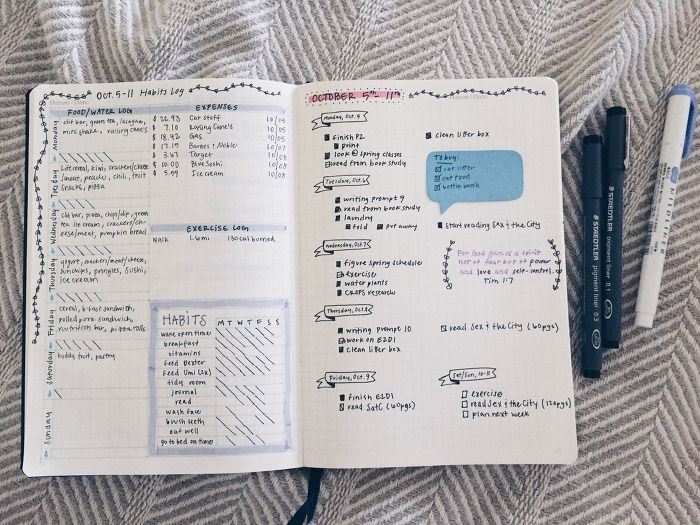 Oct. 5-11 Habits Log
FOOD/WATER LOG
Monday
clif bar, green tea, lasagna,
mini shake, raising cane's
Tuesday
cheese/crackers, chili, fruit
snacks, pizza
Wednesday
clif bar, pizza, chips/dip, green
tea, ice cream, crackers/ch-
eese/meat, pumpkin bread
Thursday
yogurt, crackers/meat/cheese,
sunchips, pringles, sushi,
ice cream
Friday
cereal, bfast sandwich,
pulled pork sandwich,
nutrition bar, pizza rolls
Saturday
buddy fruit, pastry
Sunday
EXPENSES
$ 22.93 Cat stuff 10/05
$ 7.10 Raising Cane's 10/05
$ 18.42 Gas 10/05
$ 17.15 Barnes & Noble 10/07
$ 3.67 Target 10/08
$ 10.00 Blue Sushi 10/08
$ 5.59 Ice cream 10/08
EXERCISE LOG
Walk 1.6mi 130 cal burned
HABITS M T W T F S S
wake up on time
breakfast
vitamins
feed Dexter
feed Umi (2x)
tidy room
journal
read
wash face
brush teeth
eat well
go to bed on time
OCTOBER 5TH 11TH
Monday, Oct. 5
finish P2
print
look @ spring classes
read from book study
clean litter box
To buy:
cat litter
cat food
bottle brush
Tuesday, Oct. 6
writing prompt 9
read from book study
laundry
fold put away
start reading Sex & the City
Wednesday, Oct 7
figure spring schedule
exercise
water plants
CRAPS research
For God gave us a spirit
not of fear but of power
and love and self-control.
Tim 1:7
Thursday, Oct. 8
writing prompt 10
work on E2D1
clean litter box
read Sex & the City (60pgs)
Friday, Oct. 9
finish E2D1
read SatC (60pgs)
Sat/Sun, 10-11
exercise
read Sex & the City (120pgs)
plan next week
STAEDTLER pigment liner 0.3
STAEDTLER pigment liner 0.1
MILDLINER